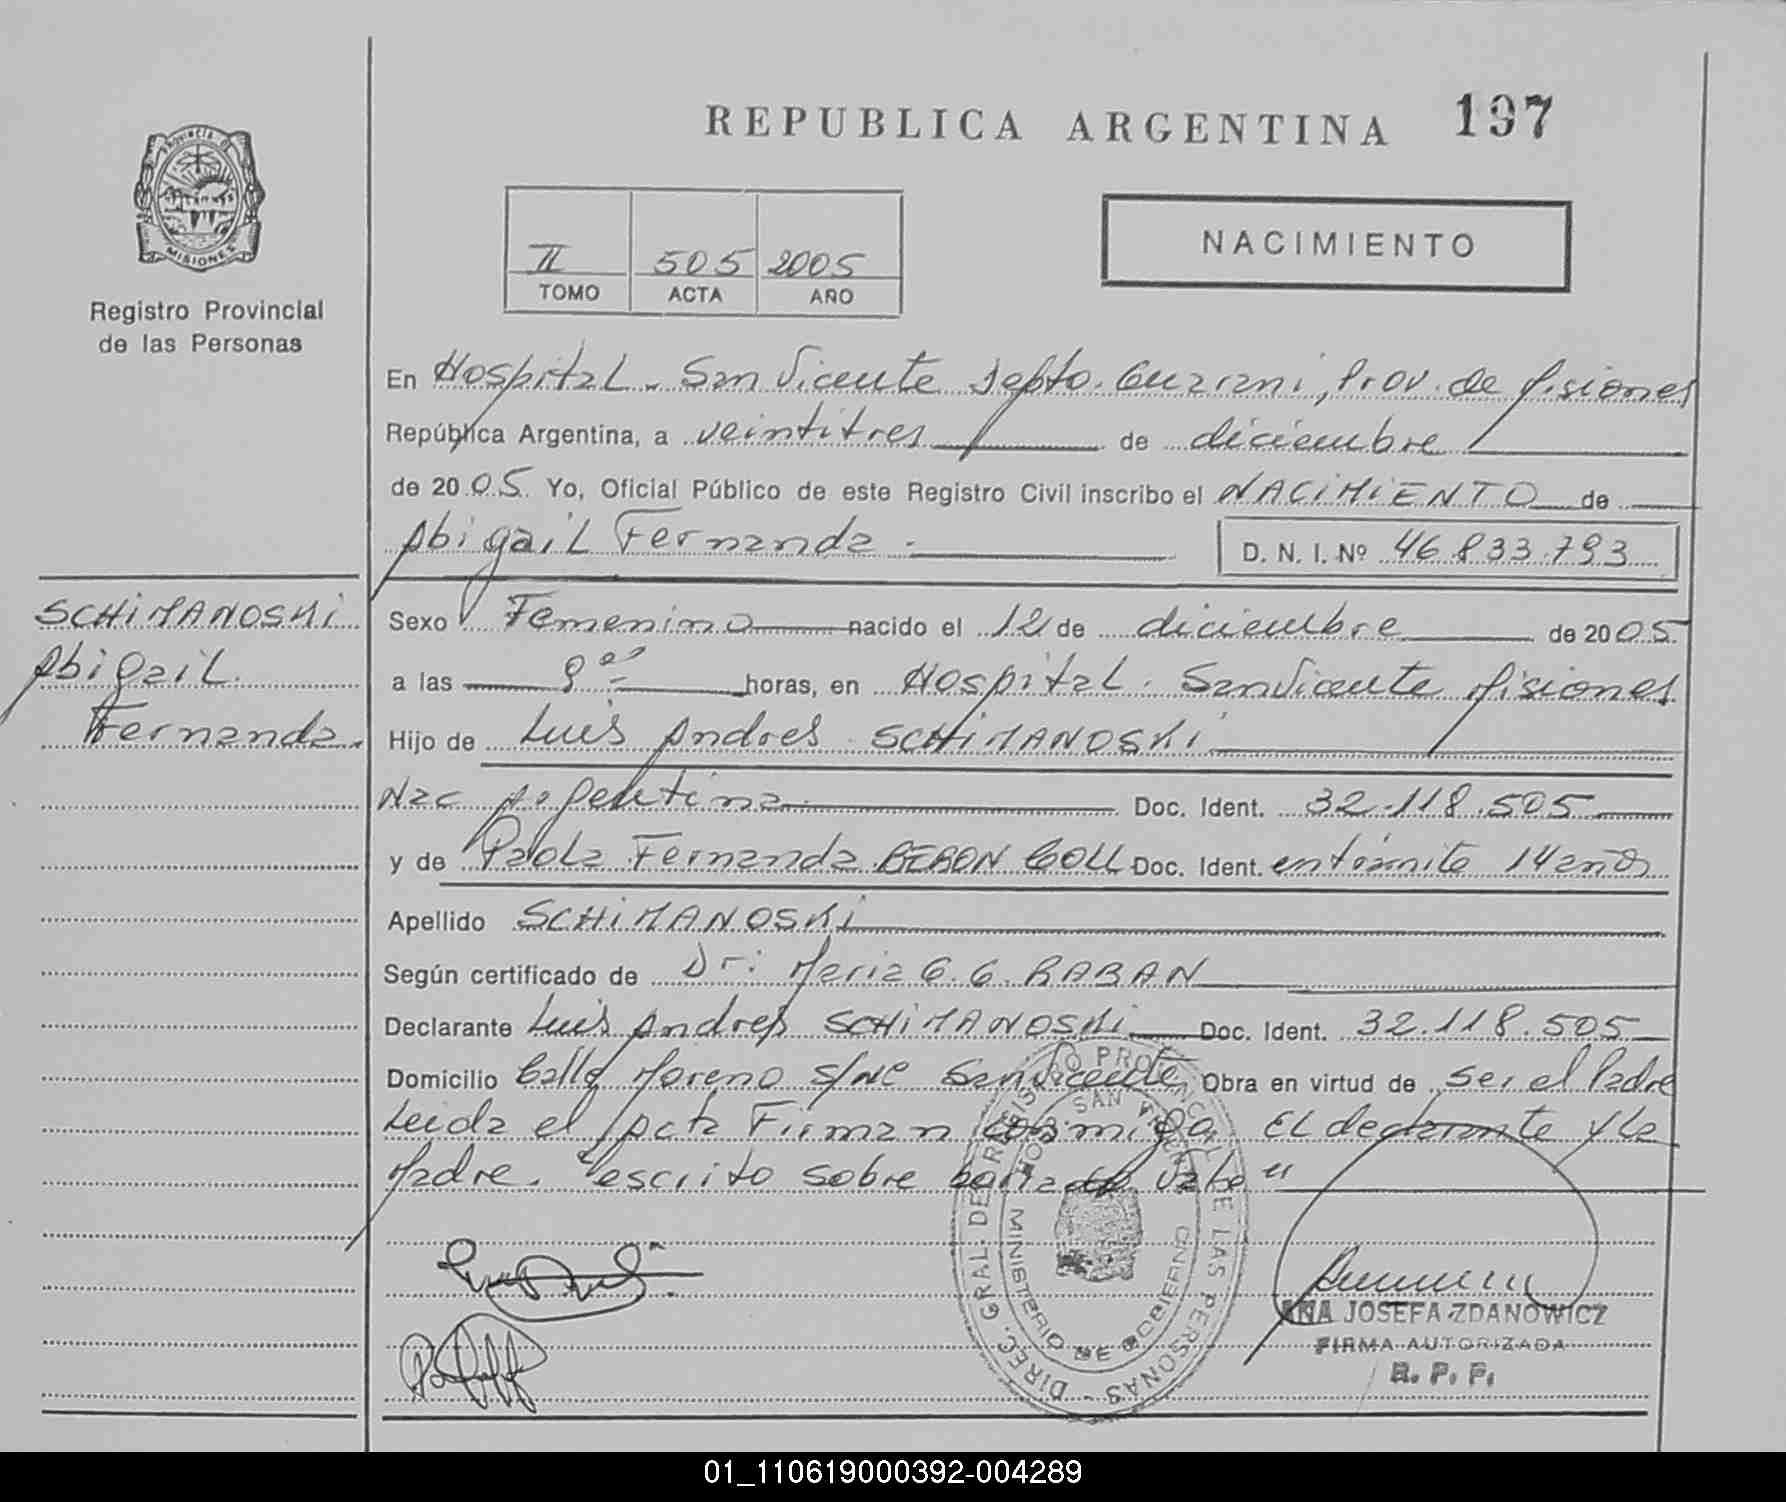 REPUBLICA ARGENTINA 197
PROVINCIA DE
MISIONES
Registro Provincial
de las Personas
NACIMIENTO
II 505 2005
TOMO ACTA AÑO
En Hospital - San Vicente Depto. Guarani, Prov. de Misiones
República Argentina, a veintitres de diciembre
de 2005 Yo, Oficial Público de este Registro Civil inscribo el NACIMIENTO de
Abigail Fernanda. D. N. I. Nº 46.833.793
SCHIMANOSKI
Abigail
Fernanda.
Sexo Femenino nacido el 12 de diciembre de 2005
a las 9 horas, en Hospital. San Vicente Misiones
Hijo de Luis Andres SCHIMANOSKI
Nac Argentina Doc. Ident. 32.118.505
y de Paola Fernanda BERON GOLL Doc. Ident. en trámite 14 años
Apellido SCHIMANOSKI
Según certificado de Dr: Maria G. G. RABAN
Declarante Luis Andres SCHIMANOSKI Doc. Ident. 32.118.505
Domicilio Calle Moreno s/Nº San Vicente Obra en virtud de ser el Padre
Leida el Acta Firman conmigo El declarante y la
Madre. "escrito sobre borrado vale"
DIREC. GRAL. DE REGISTRO PROVINCIAL DE LAS PERSONAS
MINISTERIO DE GOBIERNO
SAN VICENTE
ANA JOSEFA ZDANOWICZ
FIRMA AUTORIZADA
R. P. P.
01_110619000392-004289